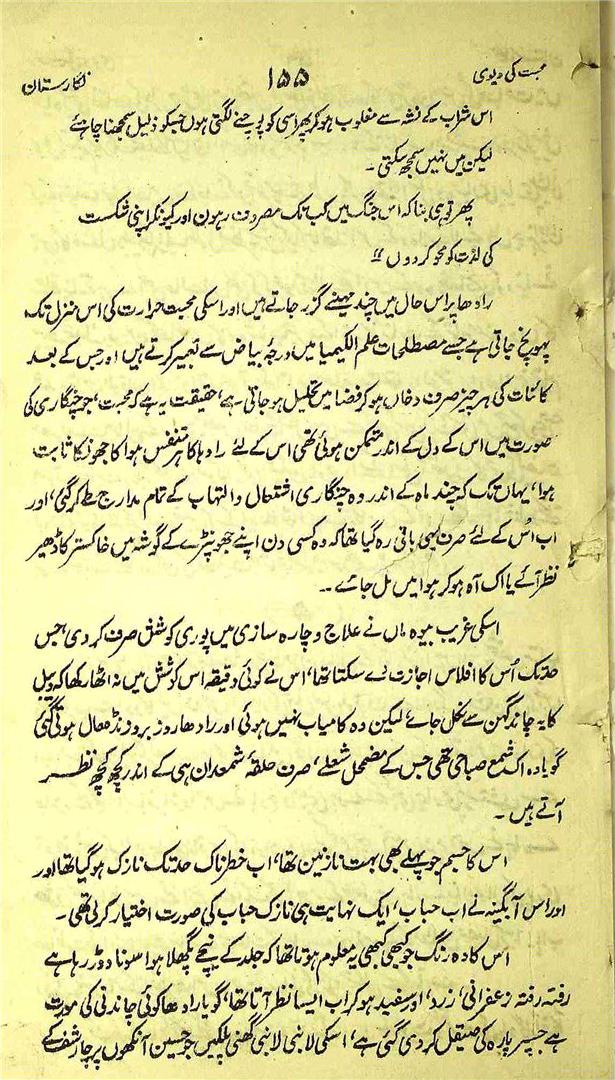 محبت کی دیوی ۱۵۵ نگارستان
اس شراب کے نشہ سے مغلوب ہوکر پھر اسی کو پوجنے لگتی ہوں جسکو ذلیل سمجھنا چاہئے
لیکن میں نہیں سمجھ سکتی۔
پھر توہی بتا کہ اس جنگ میں کب تک مصروف رہون اور کیونکر اپنی شکست
کی لذت کو محو کردوں !!
رادھا پر اس حال میں چند مہینے گزر جاتے ہیں اور اسکی محبت حرارت کی اس منزل تک
پہونچ جاتی ہے جسے مصطلحات علم الکیمیا میں درجۂ بیاض سے تعبیر کرتے ہیں اور جس کے بعد
کائنات کی ہر چیز صرف دخاں ہوکر فضا میں تحلیل ہوجاتی ہے، حقیقت یہ ہے کہ محبت، جو چنگاری کی
صورت میں اس کے دل کے اندر متمکن ہوئی تھی اس کے لئے رادہا کا ہر تنفس ہوا کا جھونکا ثابت
ہوا، یہاں تک کہ چند ماہ کے اندر وہ چنگاری اشتعال و التہاب کے تمام مدارج طے کرگئی، اور
اب اُس کے لئے صرف یہی باقی رہ گیا تھا کہ وہ کسی دن اپنے جھونپڑے کے گوشہ میں خاکستر کا ڈھیر
نظر آئے یا اک آہ ہوکر ہوا میں مل جائے۔
اسکی غریب بیوہ ماں نے علاج و چارہ سازی میں پوری کوشش صرف کردی، جس
حد تک اُس کا افلاس اجازت دے سکتا تھا، اس نے کوئی دقیقہ اس کوشش میں نہ اٹھا رکھا کہ دیبل
کا یہ چاند گہن سے نکل جائے، لیکن وہ کامیاب نہیں ہوئی اور رادھا روز بروز نڈھال ہوتی گئی
گویا وہ اک شمع صباحی تھی جس کے مضمحل شعلے، صرف حلقۂ شمعدان ہی کے اندر کچھ کچھ نظر
آتے ہیں۔
اس کا جسم جو پہلے بھی بہت نازنین تھا، اب خطرناک حد تک نازک ہوگیا تھا اور
اور اس آبگینہ نے اب حباب، ایک نہایت ہی نازک حباب کی صورت اختیار کرلی تھی۔
اس کا وہ رنگ جو کبھی کبھی یہ معلوم ہوتا تھا کہ جلد کے نیچے پگھلا ہوا سونا دوڑ رہا ہے
رفتہ رفتہ زعفرانی، زرد، اور سفید ہوکر اب ایسا نظر آتا تھا، گویا رادھا کوئی چاندنی کی مورت
ہے جسپر پارہ کی صیقل کردی گئی ہے، اسکی لانبی لانبی گھنی پلکیں جو حسین آنکھوں پر